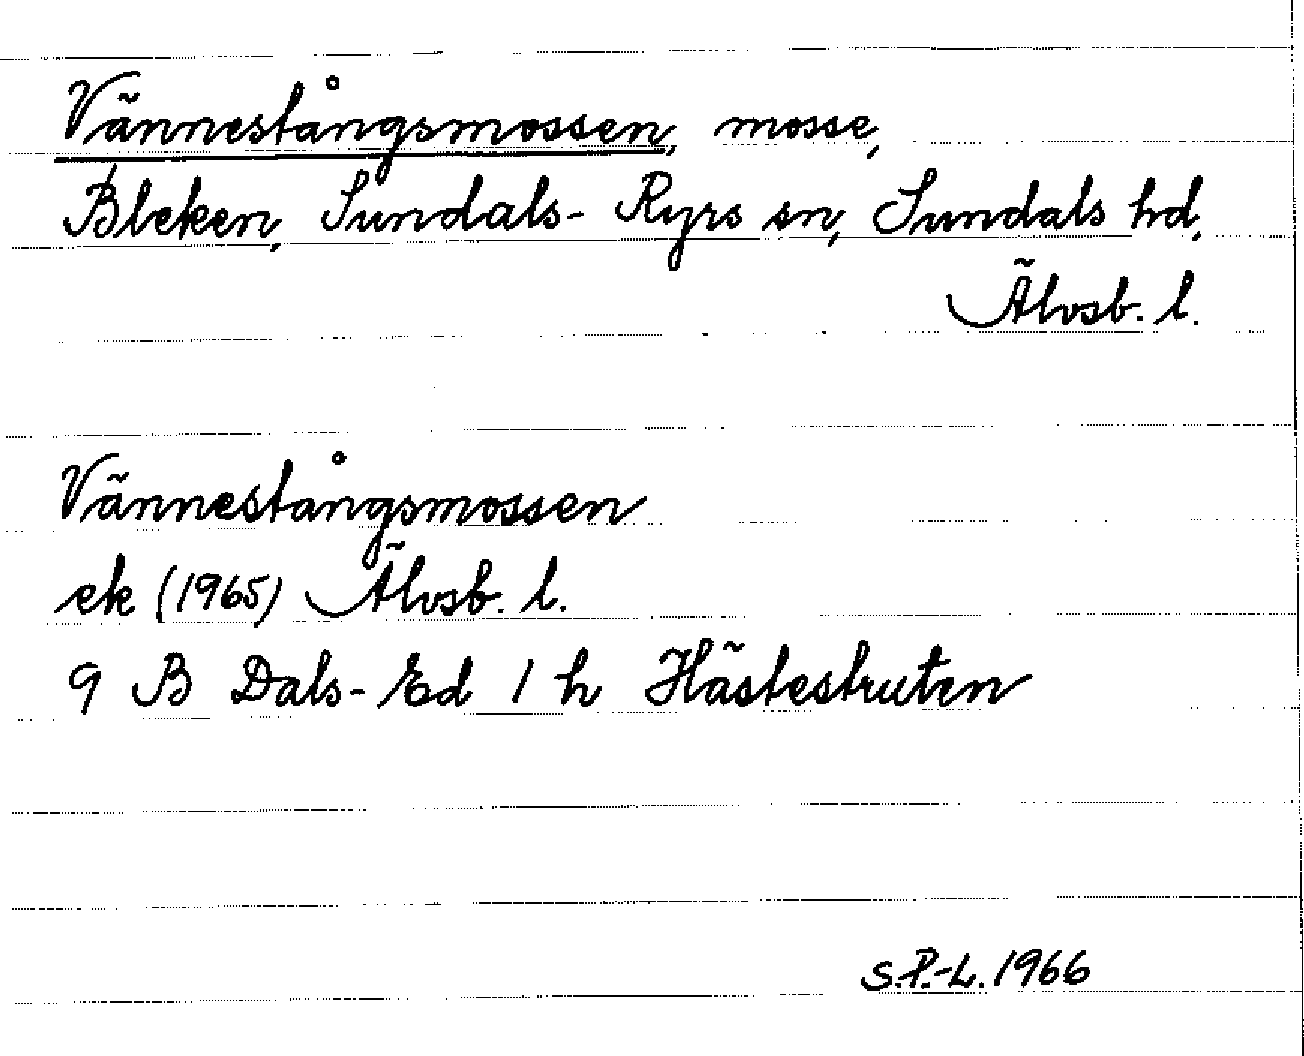 Vännestångsmossen, mosse,
Bleken, Sundals-Ryrs sn, Sundals hd,
Älvsb. l.
Vännestångsmossen
ek (1965) Älvsb. l.
9 B Dals-Ed 1 h Hästestruten
S.P.-L. 1966